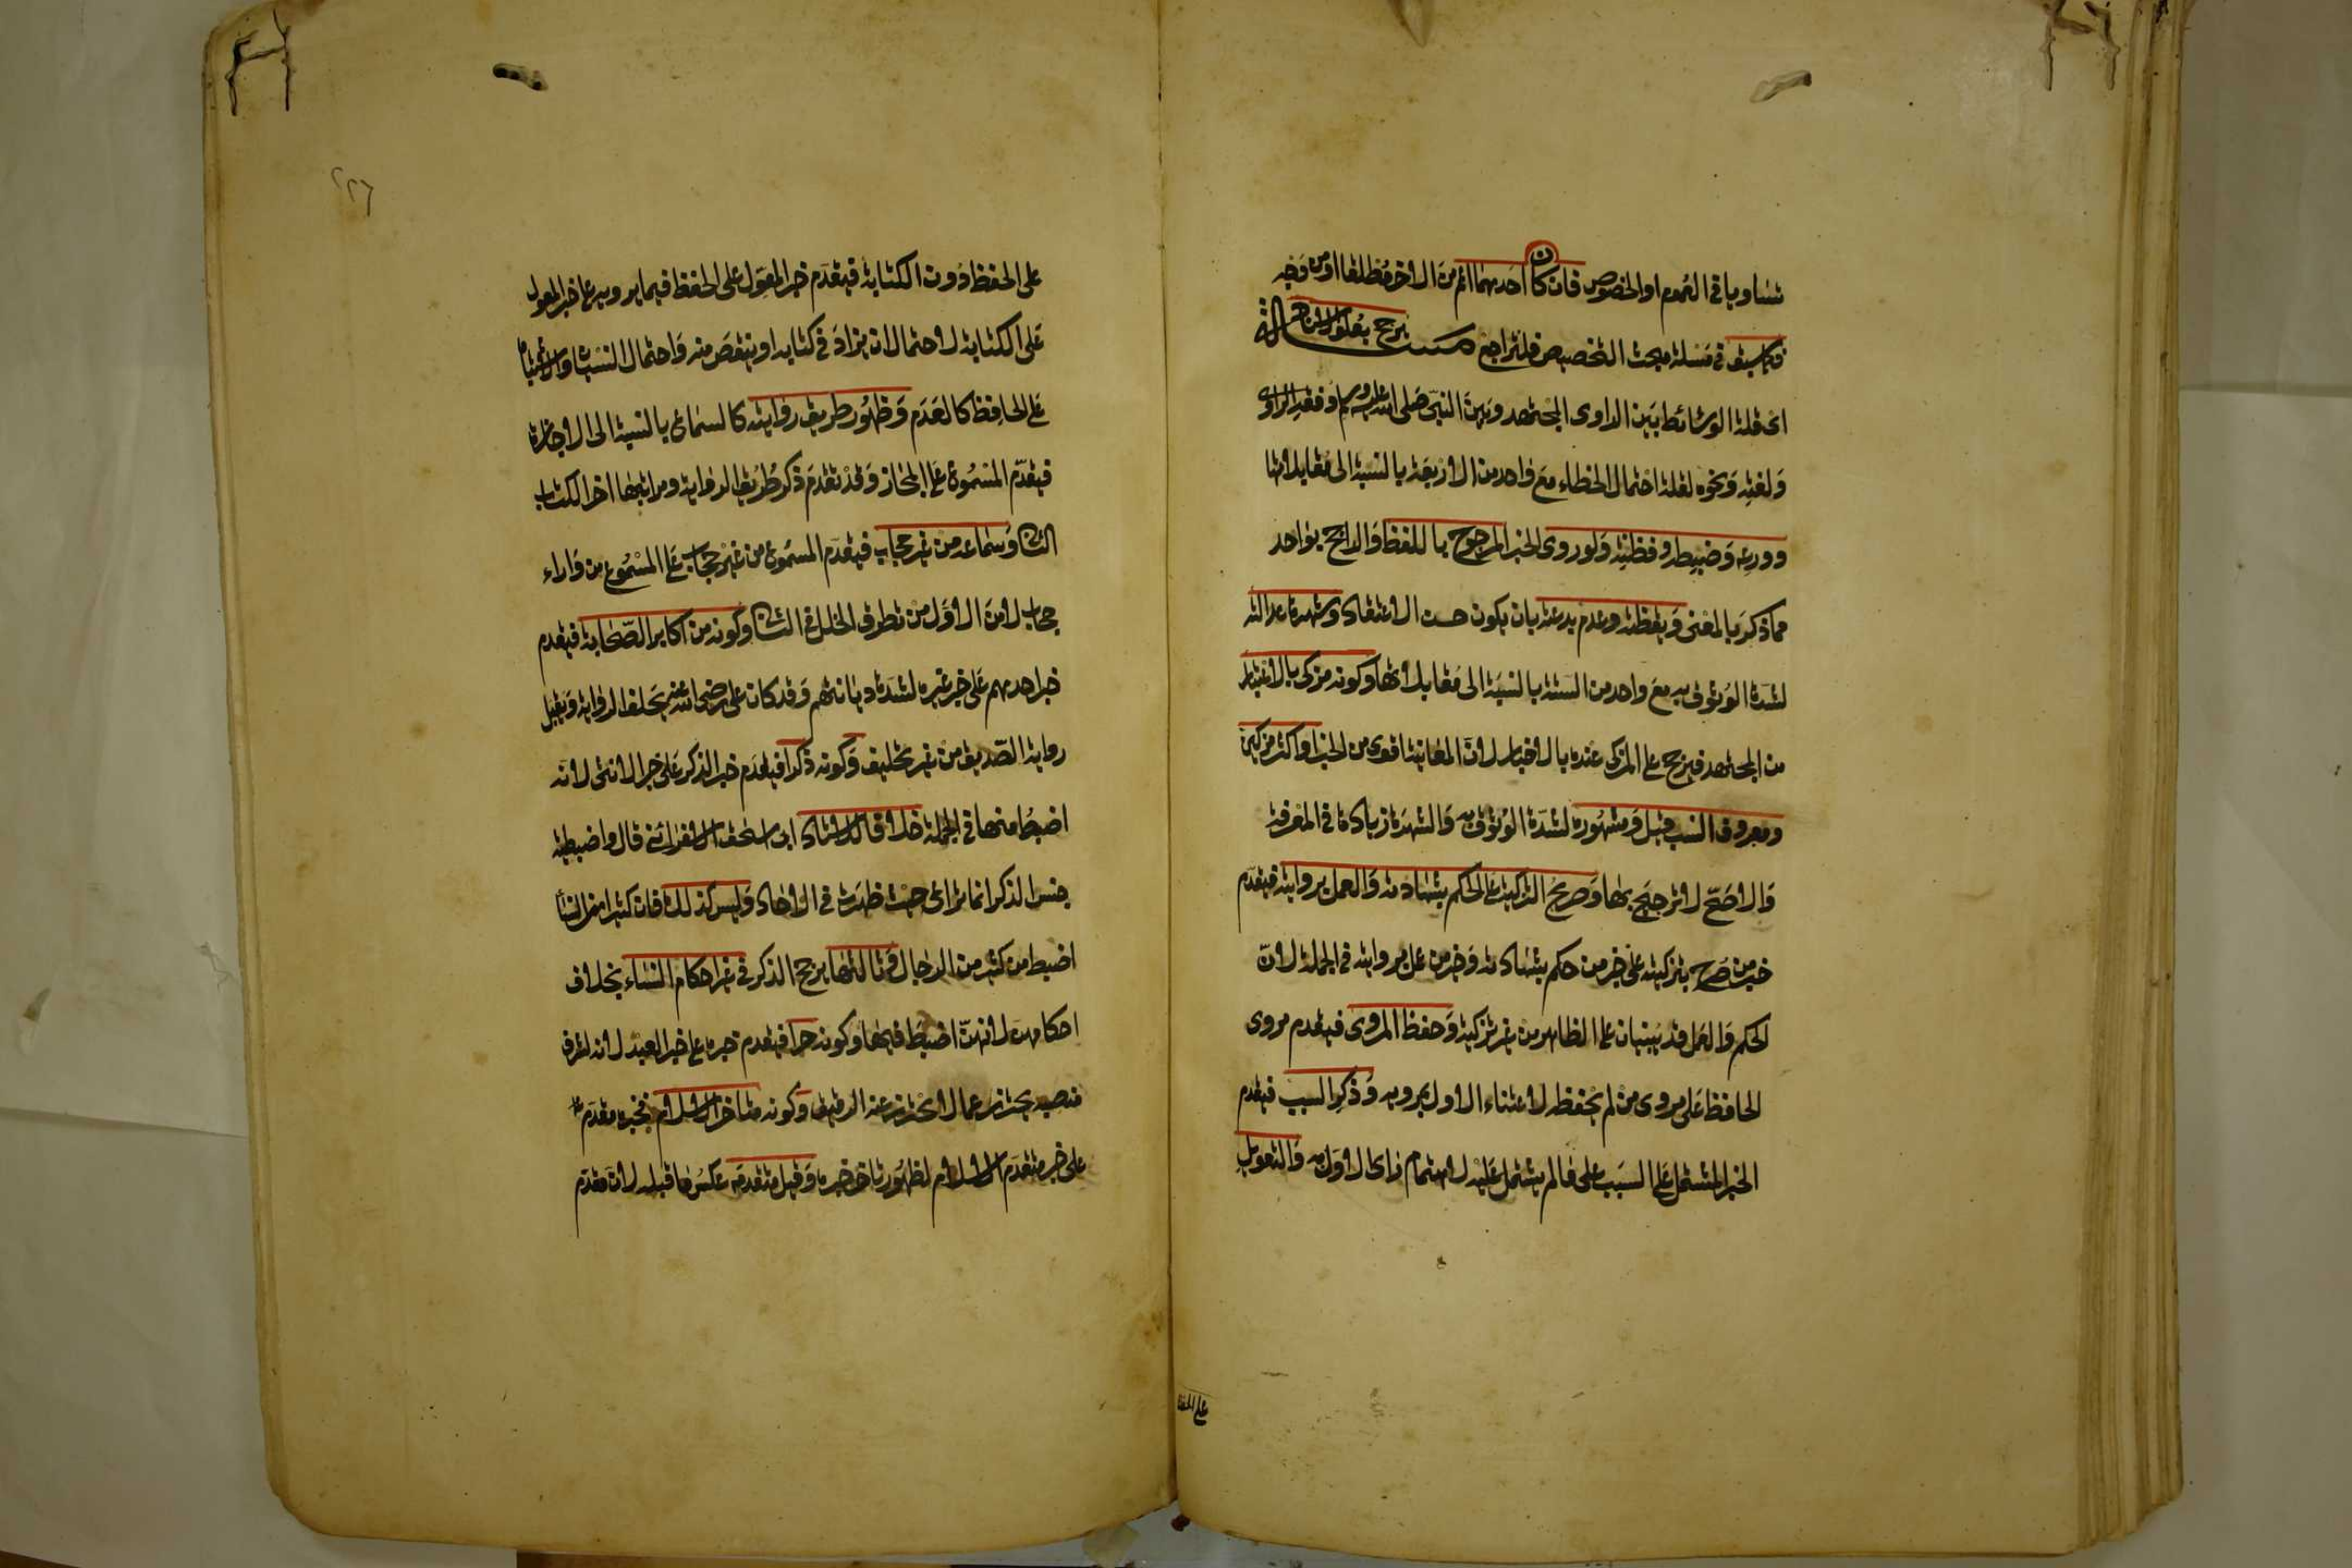 تساويا في العموم او الخصوص فان كان احدهما اعم من الاخر مطلقا او من وجه
فكما سبق في مسئلة مبحث التخصيص فلتراجع مسئلة يرجح بعلو الاسناد
اي قلة الوسائط بين الراوي المجتهد وبين النبي صلى الله عليه وسلم وفقه الراوي
ولغته ونحوه لقلة احتمال الخطاء مع واحد من الاربعة بالنسبة الى مقابلاتها
وورعه وضبطه وفطنته ولو روى الخبر المرجوح باللفظ والراجح بواحد
مما ذكر بالمعنى ويقظته وعدم بدعته بان يكون حسن الاعتقاد وشهرة عدالته
لشدة الوثوق به مع واحد من الستة بالنسبة الى مقابلاتها وكونه مزكى بالاختبار
من المجتهد فيرجح على المزكى عنده بالاخبار لان المعاينة اقوى من الخبر او اكثر مزكين
ومعروف النسب قيل ومشهوره لشدة الوثوق به والشهرة زيادة في المعرفة
والاصح لا ترجيح بها وصريح التزكية على الحكم بشهادته والعمل بروايته فيقدم
خبر من صرح بتزكيته على خبر من حكم بشهادته وخبر من عمل بروايته في الجملة لان
الحكم والعمل قد يبنيان على الظاهر من غير تزكية وحفظ المروي فيقدم مروي
الحافظ على مروي من لم يحفظه لاعتناء الاول بمرويه وذكر السبب فيقدم
الخبر المشتمل على السبب على ما لم يشتمل عليه لاهتمام راوي الاول به والتعويل
على الحفظ
٢٢٦
على الحفظ دون الكتابة فيقدم خبر المعول على الحفظ فيما يرويه على خبر المعول
على الكتابة لاحتمال ان يزاد في كتابه او ينقص منه واحتمال النسيان والاشتباه
على الحافظ كالعدم وظهور طريق روايته كالسماع بالنسبة الى الاجازة
فيقدم المسموع على المجاز وقد تقدم ذكر طريق الرواية ومراتبها اخر الكتاب
الثاني وسماعه من غير حجاب فيقدم المسموع من غير حجاب على المسموع من وراء
حجاب لامن الاول من تطرق الخلل في الثاني وكونه من اكابر الصحابة فيقدم
خبر احدهم على خبر غيره لشدة ديانتهم وقد كان علي رضي الله عنه يحلف الرواية ويقبل
رواية الصديق من غير تحليف وكونه ذكرا فيقدم خبر الذكر على خبر الانثى لانه
اضبط منها في الجملة خلافا للاستاذ ابي اسحق الاسفرائني قال واضبطية
جنس الذكر انما تراعى حيث ظهرت في الاحاد وليس كذلك فان كثيرا من النساء
اضبط من كثير من الرجال وثالثها يرجح الذكر في غير احكام النساء بخلاف
احكامهن لانهن اضبط فيها وكونه حرا فيقدم خبره على خبر العبد لانه لشرف
منصبه يحترز عما لا يحترز عنه الرقيق وكونه متاخر الاسلام فخبره مقدم
على خبر متقدم الاسلام لظهور تاخر خبره وقيل متقدمه عكس ما قبله لان متقدم